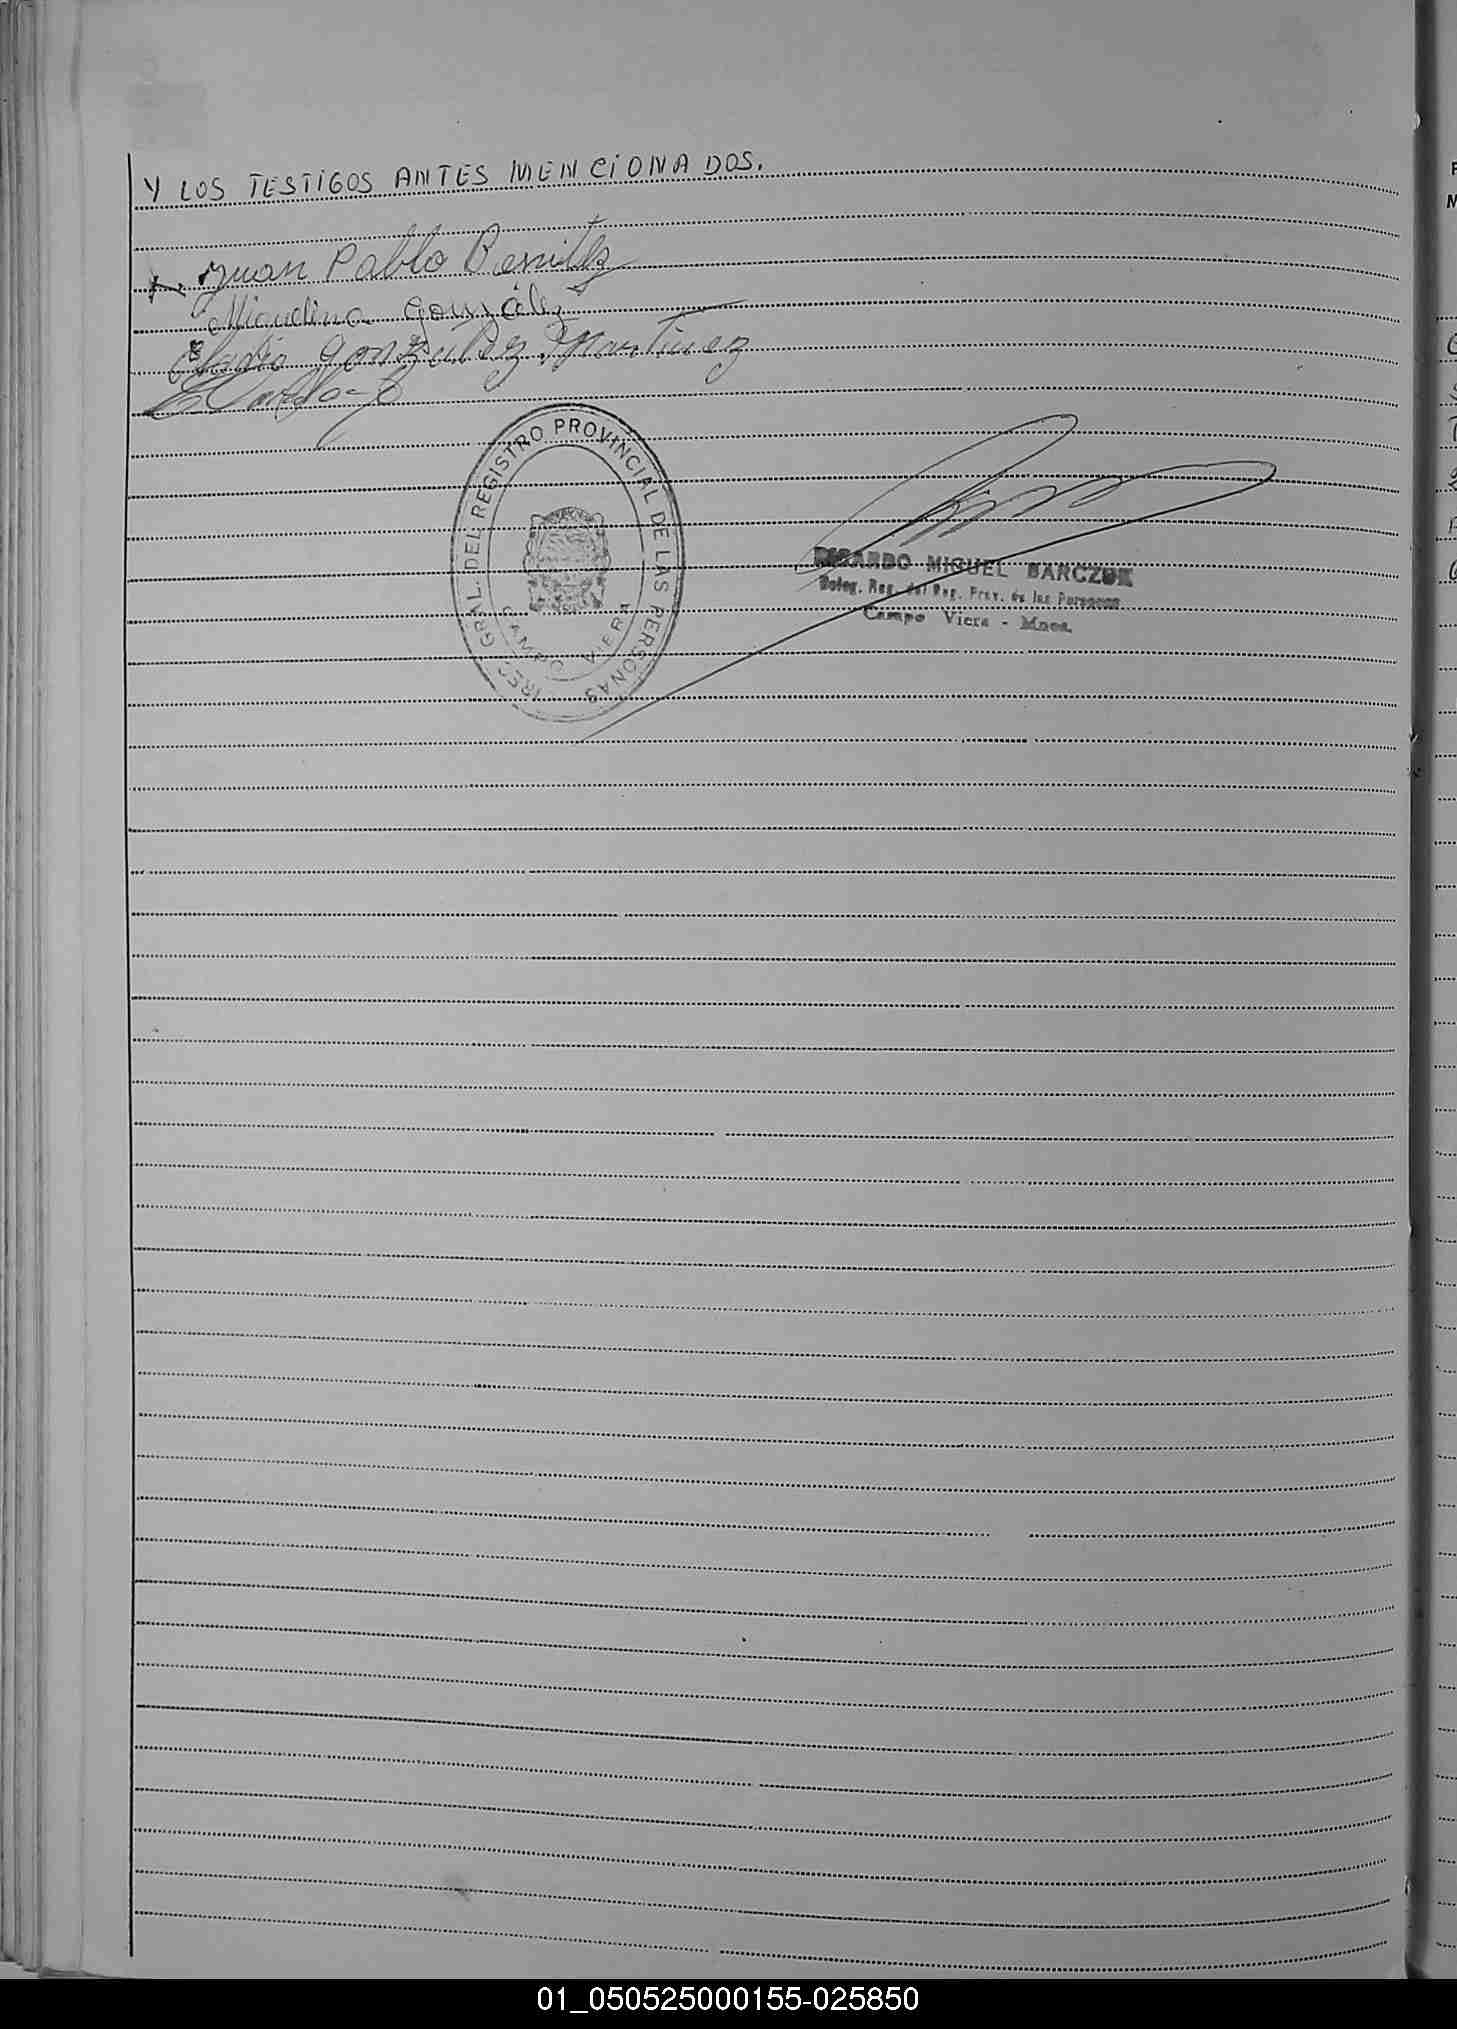 Y LOS TESTIGOS ANTES MENCIONADOS.
Juan Pablo Benitez
González
González Martinez
DIREC. GRAL. DEL REGISTRO PROVINCIAL DE LAS PERSONAS
CAMPO VIERA
RICARDO MIGUEL BARCZUK
Deleg. Reg. del Reg. Prov. de las Personas
Campo Viera - Mnes.
01_050525000155-025850